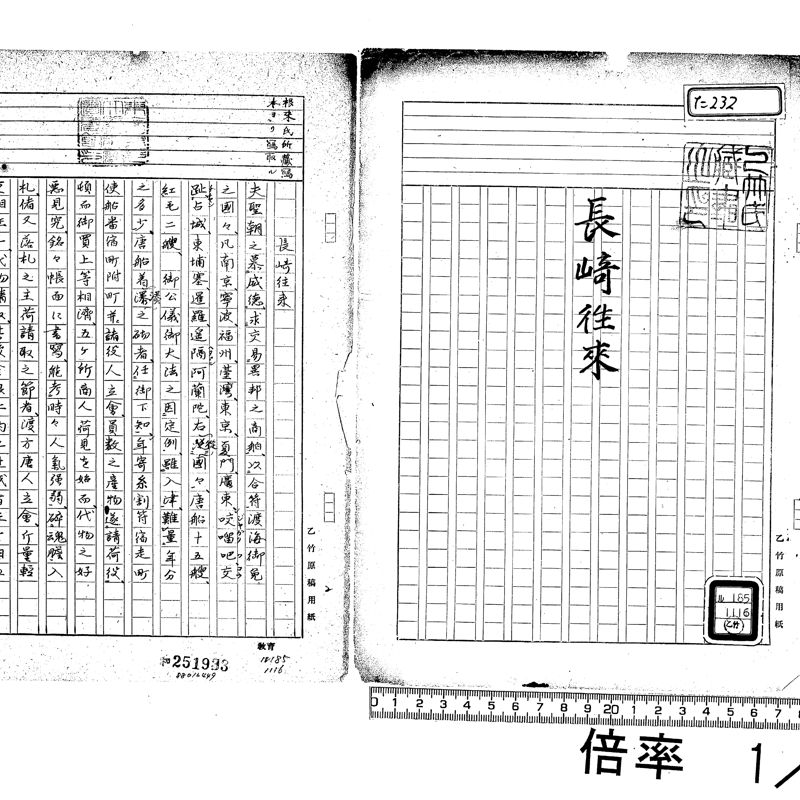 ｒ=232
長崎往來
ル185
1116
(乙竹)
乙竹原稿用紙
根來氏所藏寫
本ヨリ寫取ル
長崎往來
夫聖朝之慕威德、求交易異邦之商舶、以合符渡海御免
之國々、凡南京、寧波、福州、臺灣、東京、厦門、廣東、咬𠺕吧、交
趾、占城、東埔寨、暹羅、遥隔阿蘭陀、右從國々、唐船十五艘、
紅毛二艘、御公儀御大法之因定例、雖入津、難量年分
之多少、唐船着湊之砌者、任御下知、年寄系割符宿老町
使船番宿町附町并諸役人立會、員数之産物遂請荷役、
頓而御買上等相濟、五ケ所商人荷見を始而、代物之好
悪見究、銘々帳面に書寫、能考時々人氣强弱、碎魂膽入
札儲、又落札之主荷請取之節者、渡方唐人立會、斤量軽
乙竹原稿用紙
2
教育
和251983
ル185
1116
88016449
0 1 2 3 4 5 6 7 8 9 20 1 2 3 4 5 6 7 8
倍率 1/